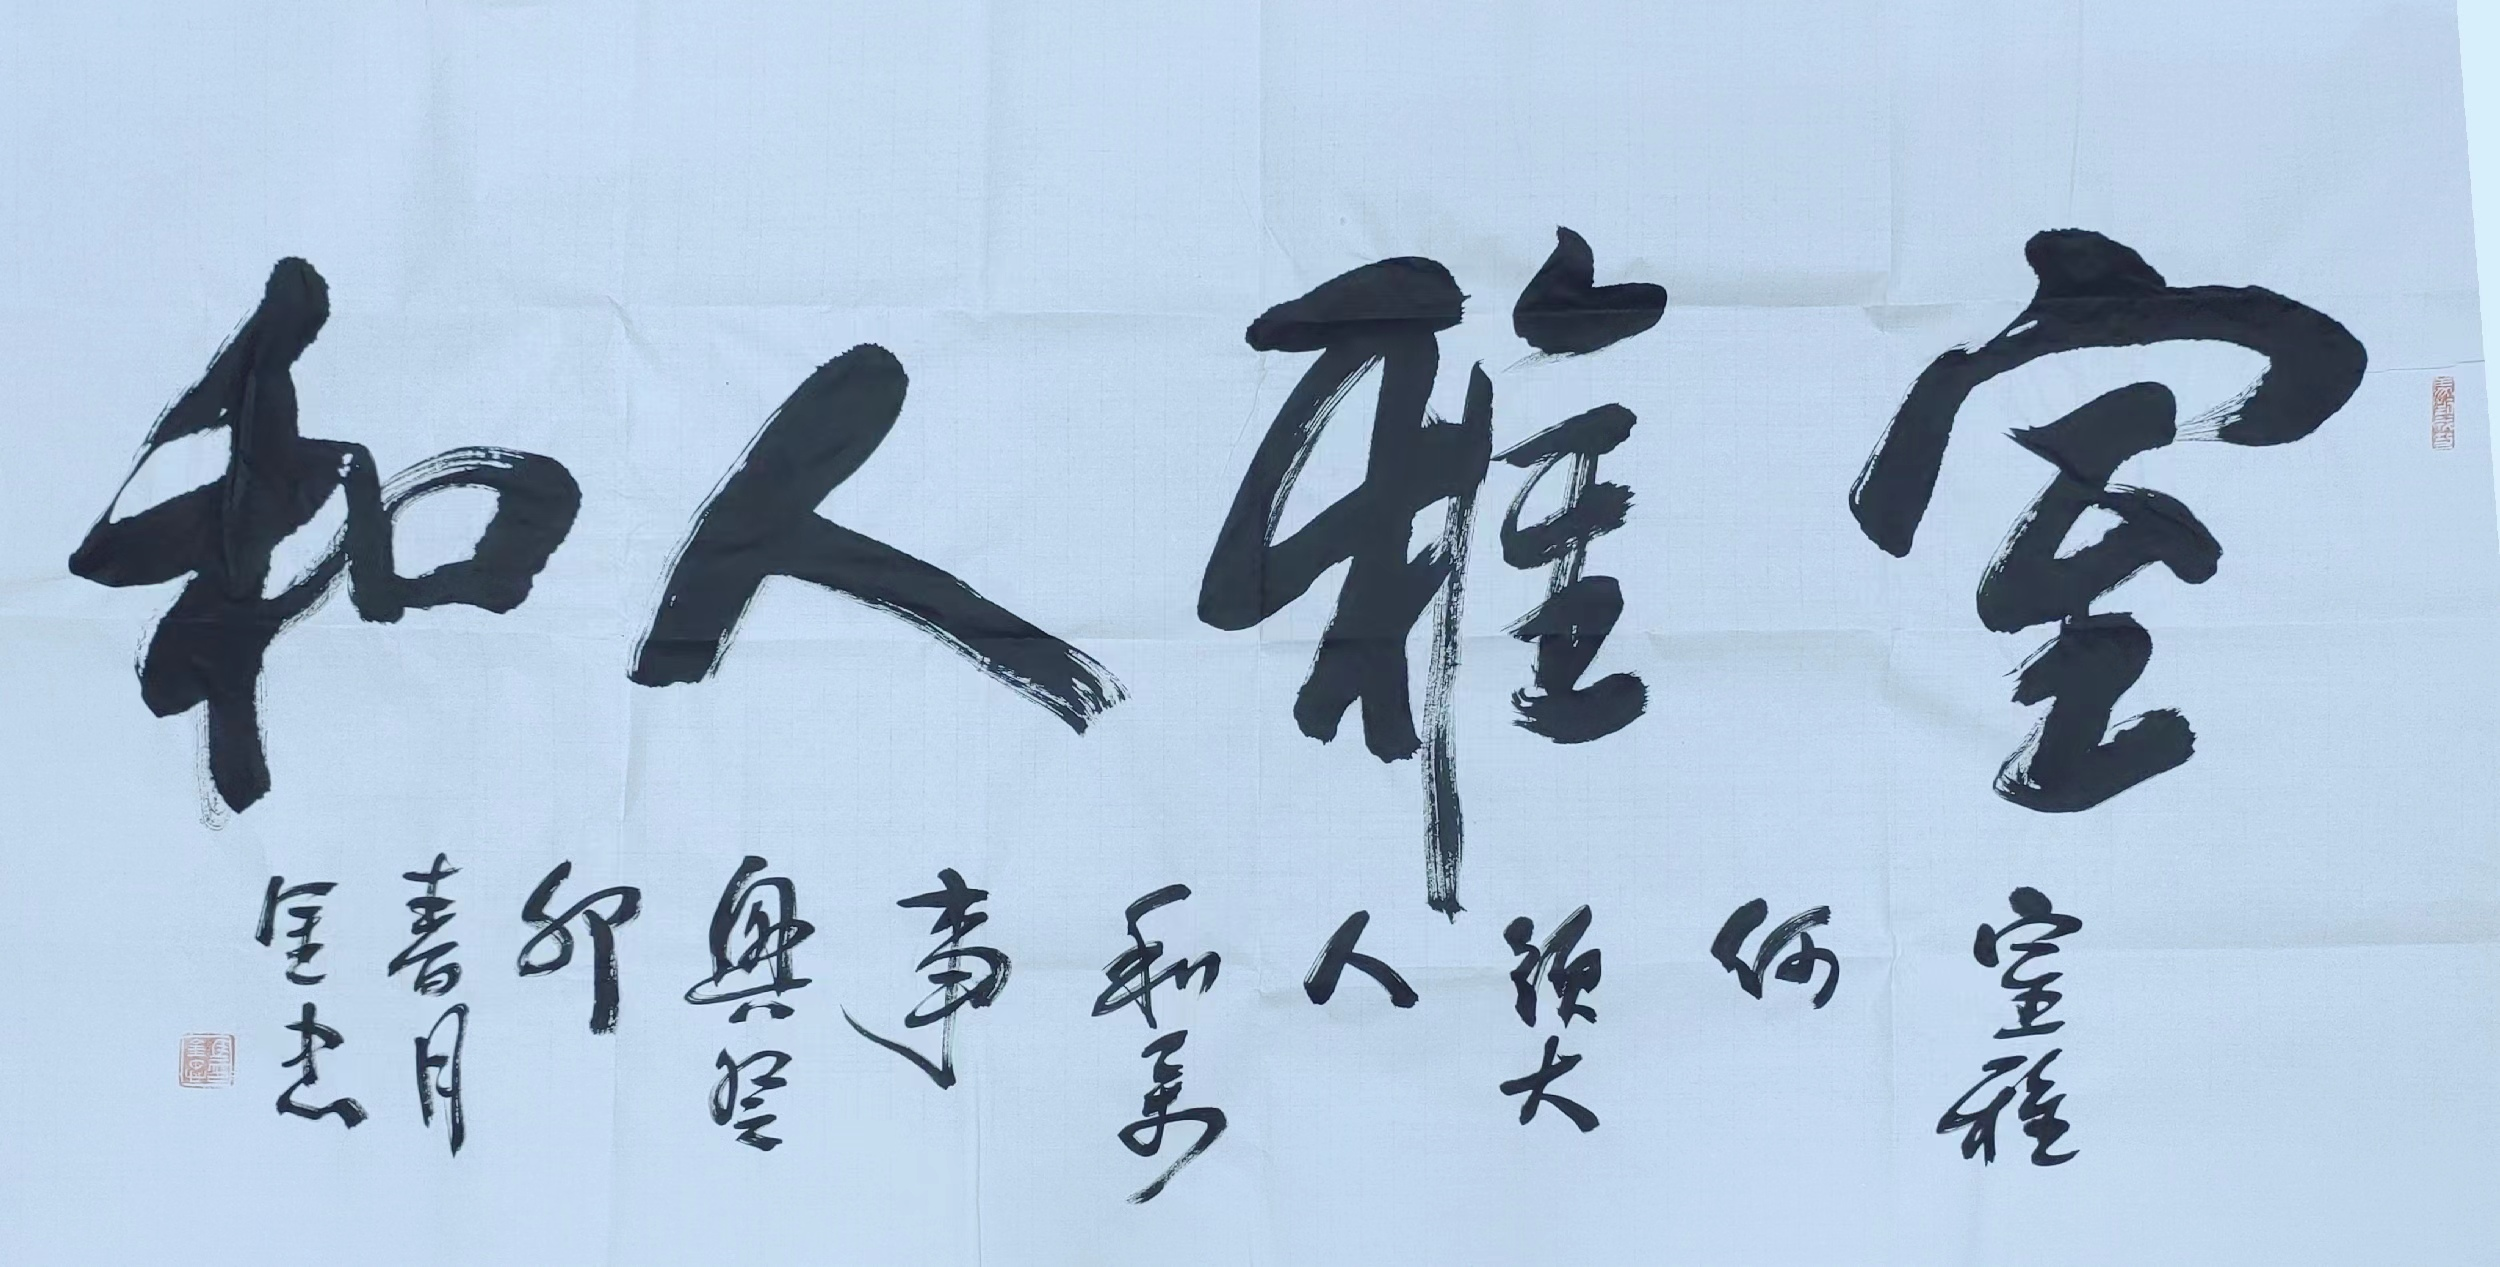 室雅人和
室雅
何
须大
人
和万
事
興癸
卯
春月
金忠